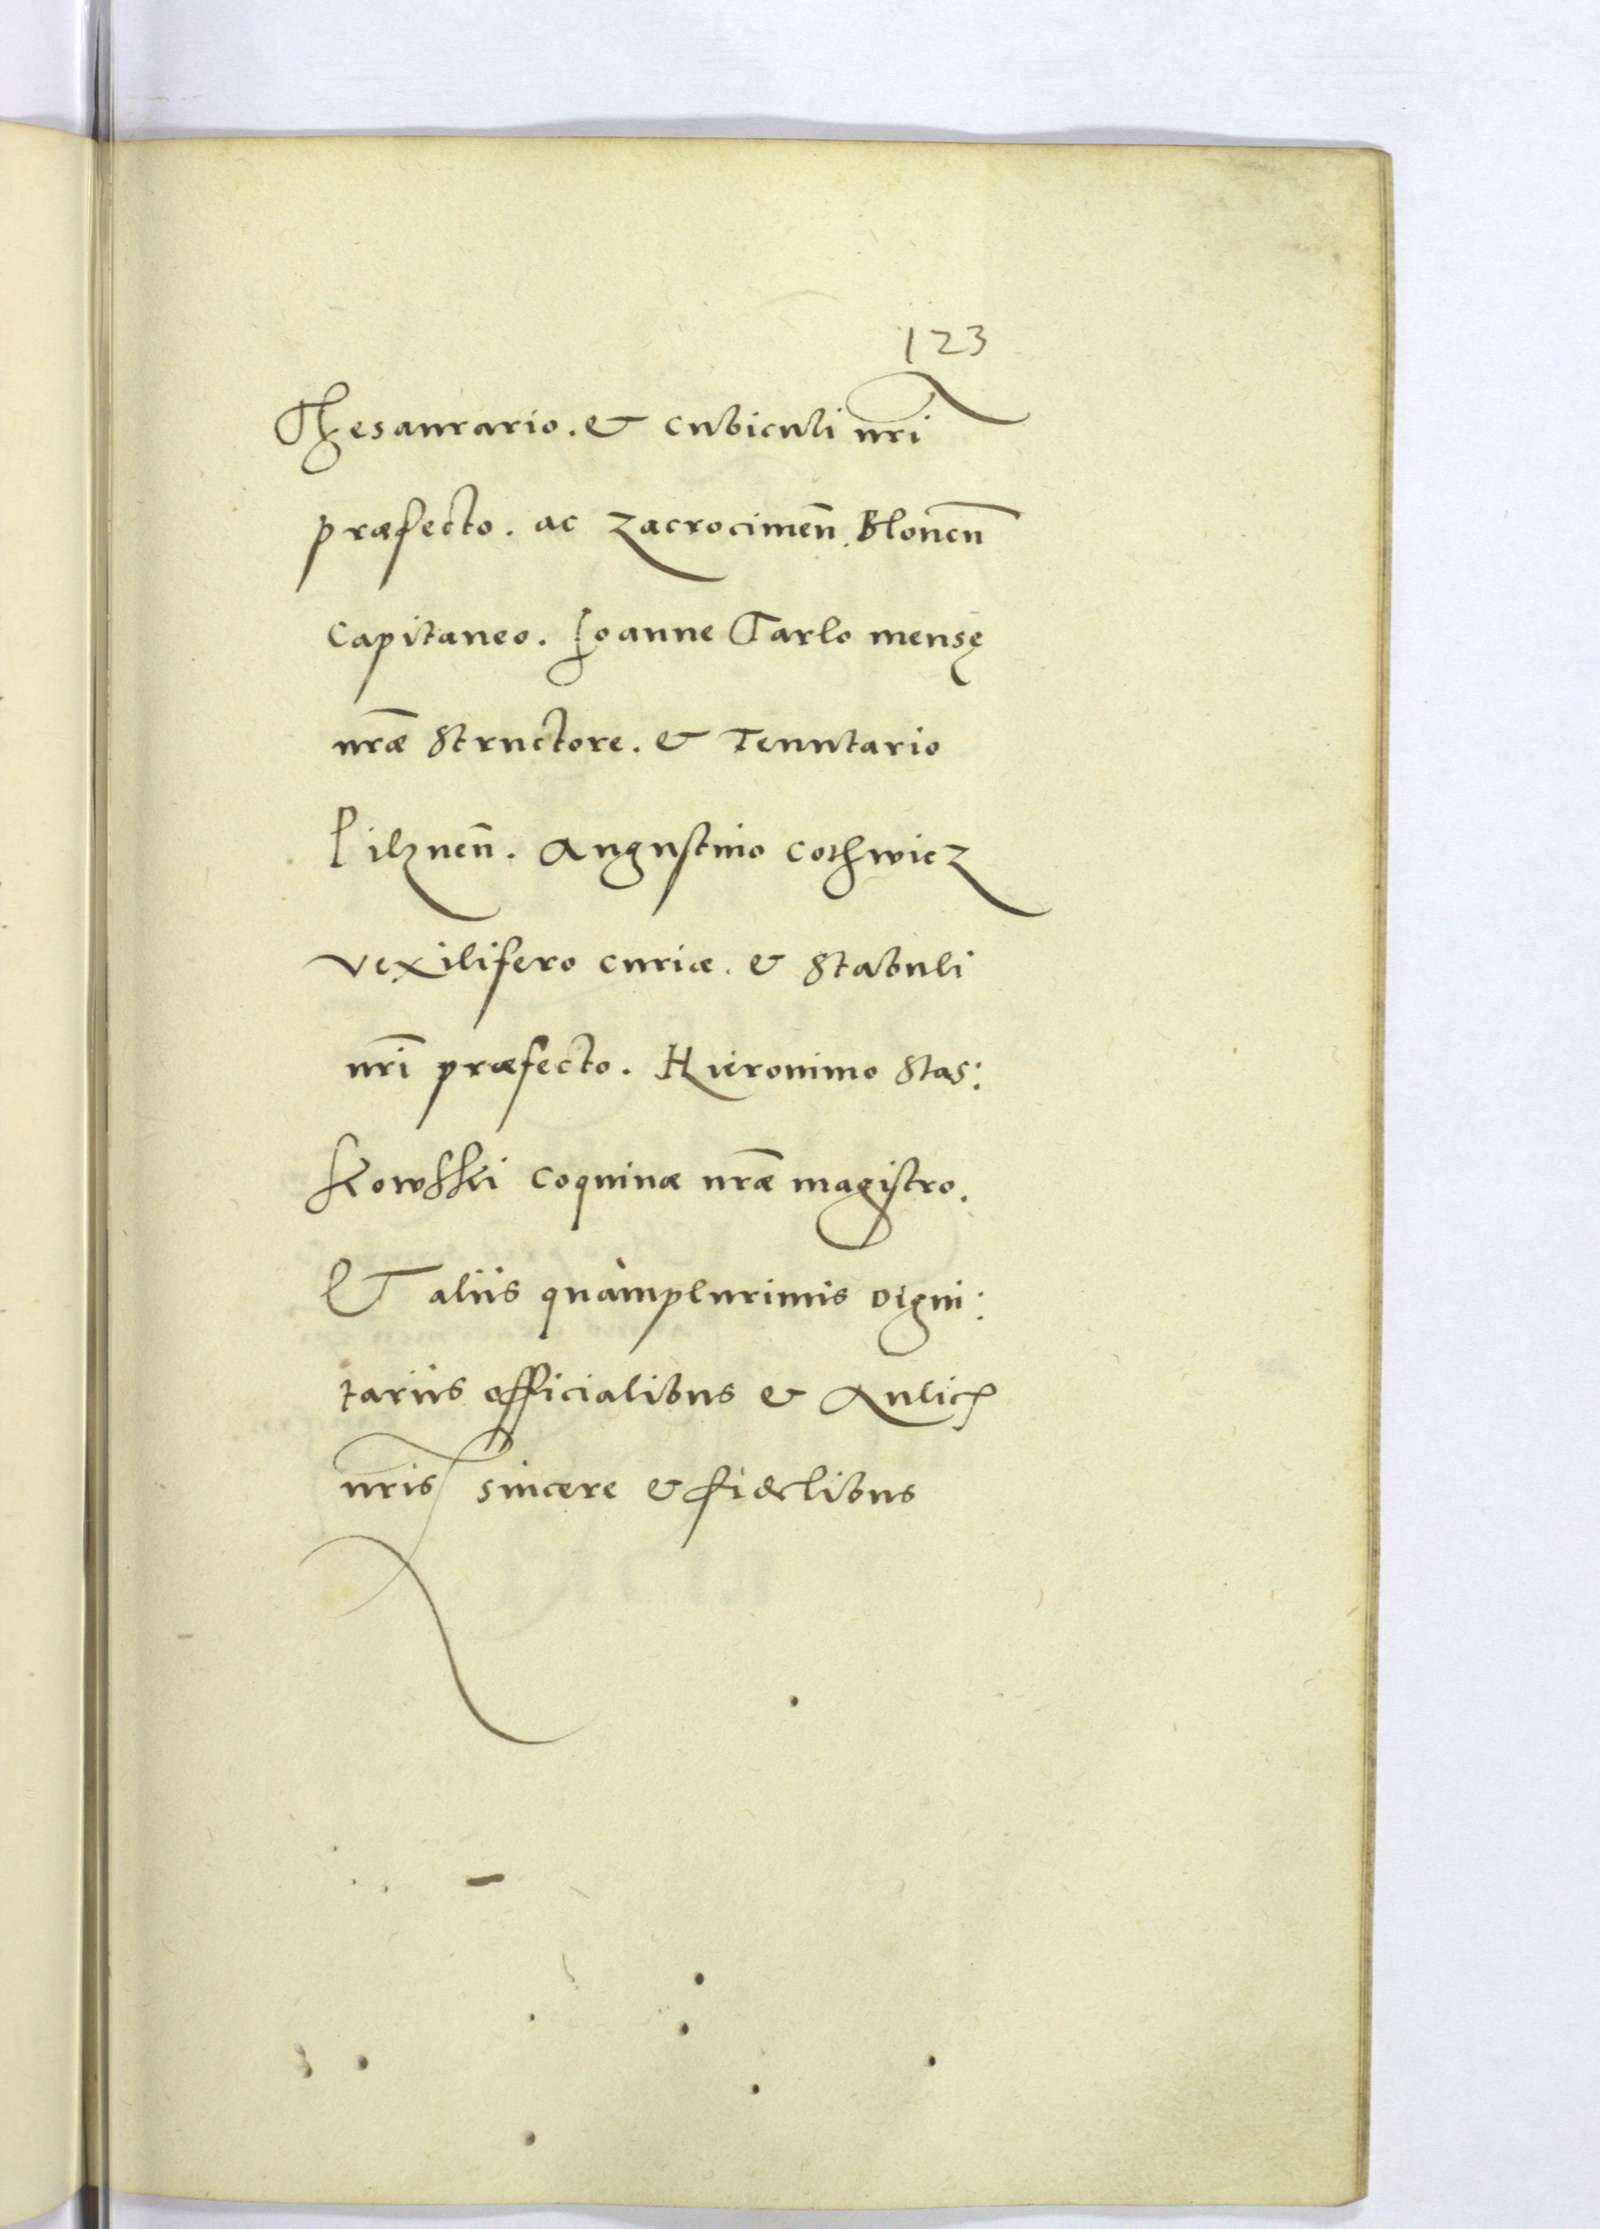 123
Thesaurario. & cubiculi nr̃i
præfecto. ac Zacrocimeñ. Bloneñ
Capitaneo. Ioanne Tarlo mensę
nr̃æ Structore. & Tenutario
Pilzneñ. Augustino Cothwicz
Vexilifero curiæ. & Stabuli
nr̃i præfecto. Hieronimo Stas:
kowsski coquinæ nr̃æ magistro.
Et aliis quàmplurimis Digni:
tariis officialibus & Aulicꝭ
nr̃is sincere & fidelibus